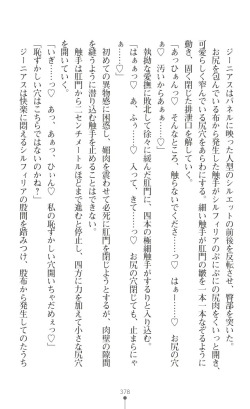 ジーニアスはパネルに映った人型のシルエットの前後を反転させ、臀部を突く。
お尻を包んでいる布から発生した触手がシルフィリアのぷにぷにの尻肉をくいっと開き、
可愛らしく窄んでいる尻穴をあらわにする。細い触手が肛門の皺を一本一本なぞるように
動き、固く閉じた排泄口を解していく。
「あっひぁんっ♡　そんなところ、触らないでくださ……っ♡　はぁー……♡　お尻の穴
ぁっ♡　汚いからぁーっ♡」
執拗な愛撫に敗北して徐々に緩んだ肛門に、四本の極細触手がするりと入り込む。
「はーっ……♡　あ、ふぅ……っ♡　入って、きて……っ♡　お尻の穴閉じても、止まらにゃ
ぁ……♡」
初めての異物感に困惑し、媚肉を震わせて必死に肛門を閉じようとするが、肉壁の隙間
を縫うように潜り込む触手を止めることはできない。
触手は肛門から二センチメートルほどまで進むと停止し、四方に力を加えて小さな尻穴
を開いていく。
「いぎ……っ♡　あっ、あぁっ♡ひぃん♡　私の恥ずかしい穴開いちゃだめぇっ♡」
「恥ずかしい穴はこちらではないのかね？」
ジーニアスは快楽に悶えるシルフィリアの股間を踏みつけ、股布から発生してのたうち
378